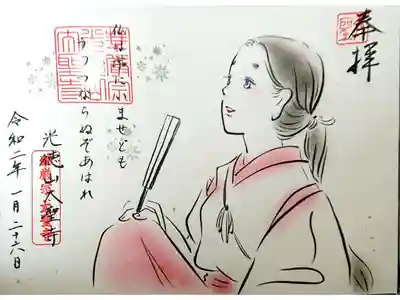 奉拝
仏は常にいませども
うつつならぬぞあはれ
光徳山大聖寺
令和二年一月二十六日